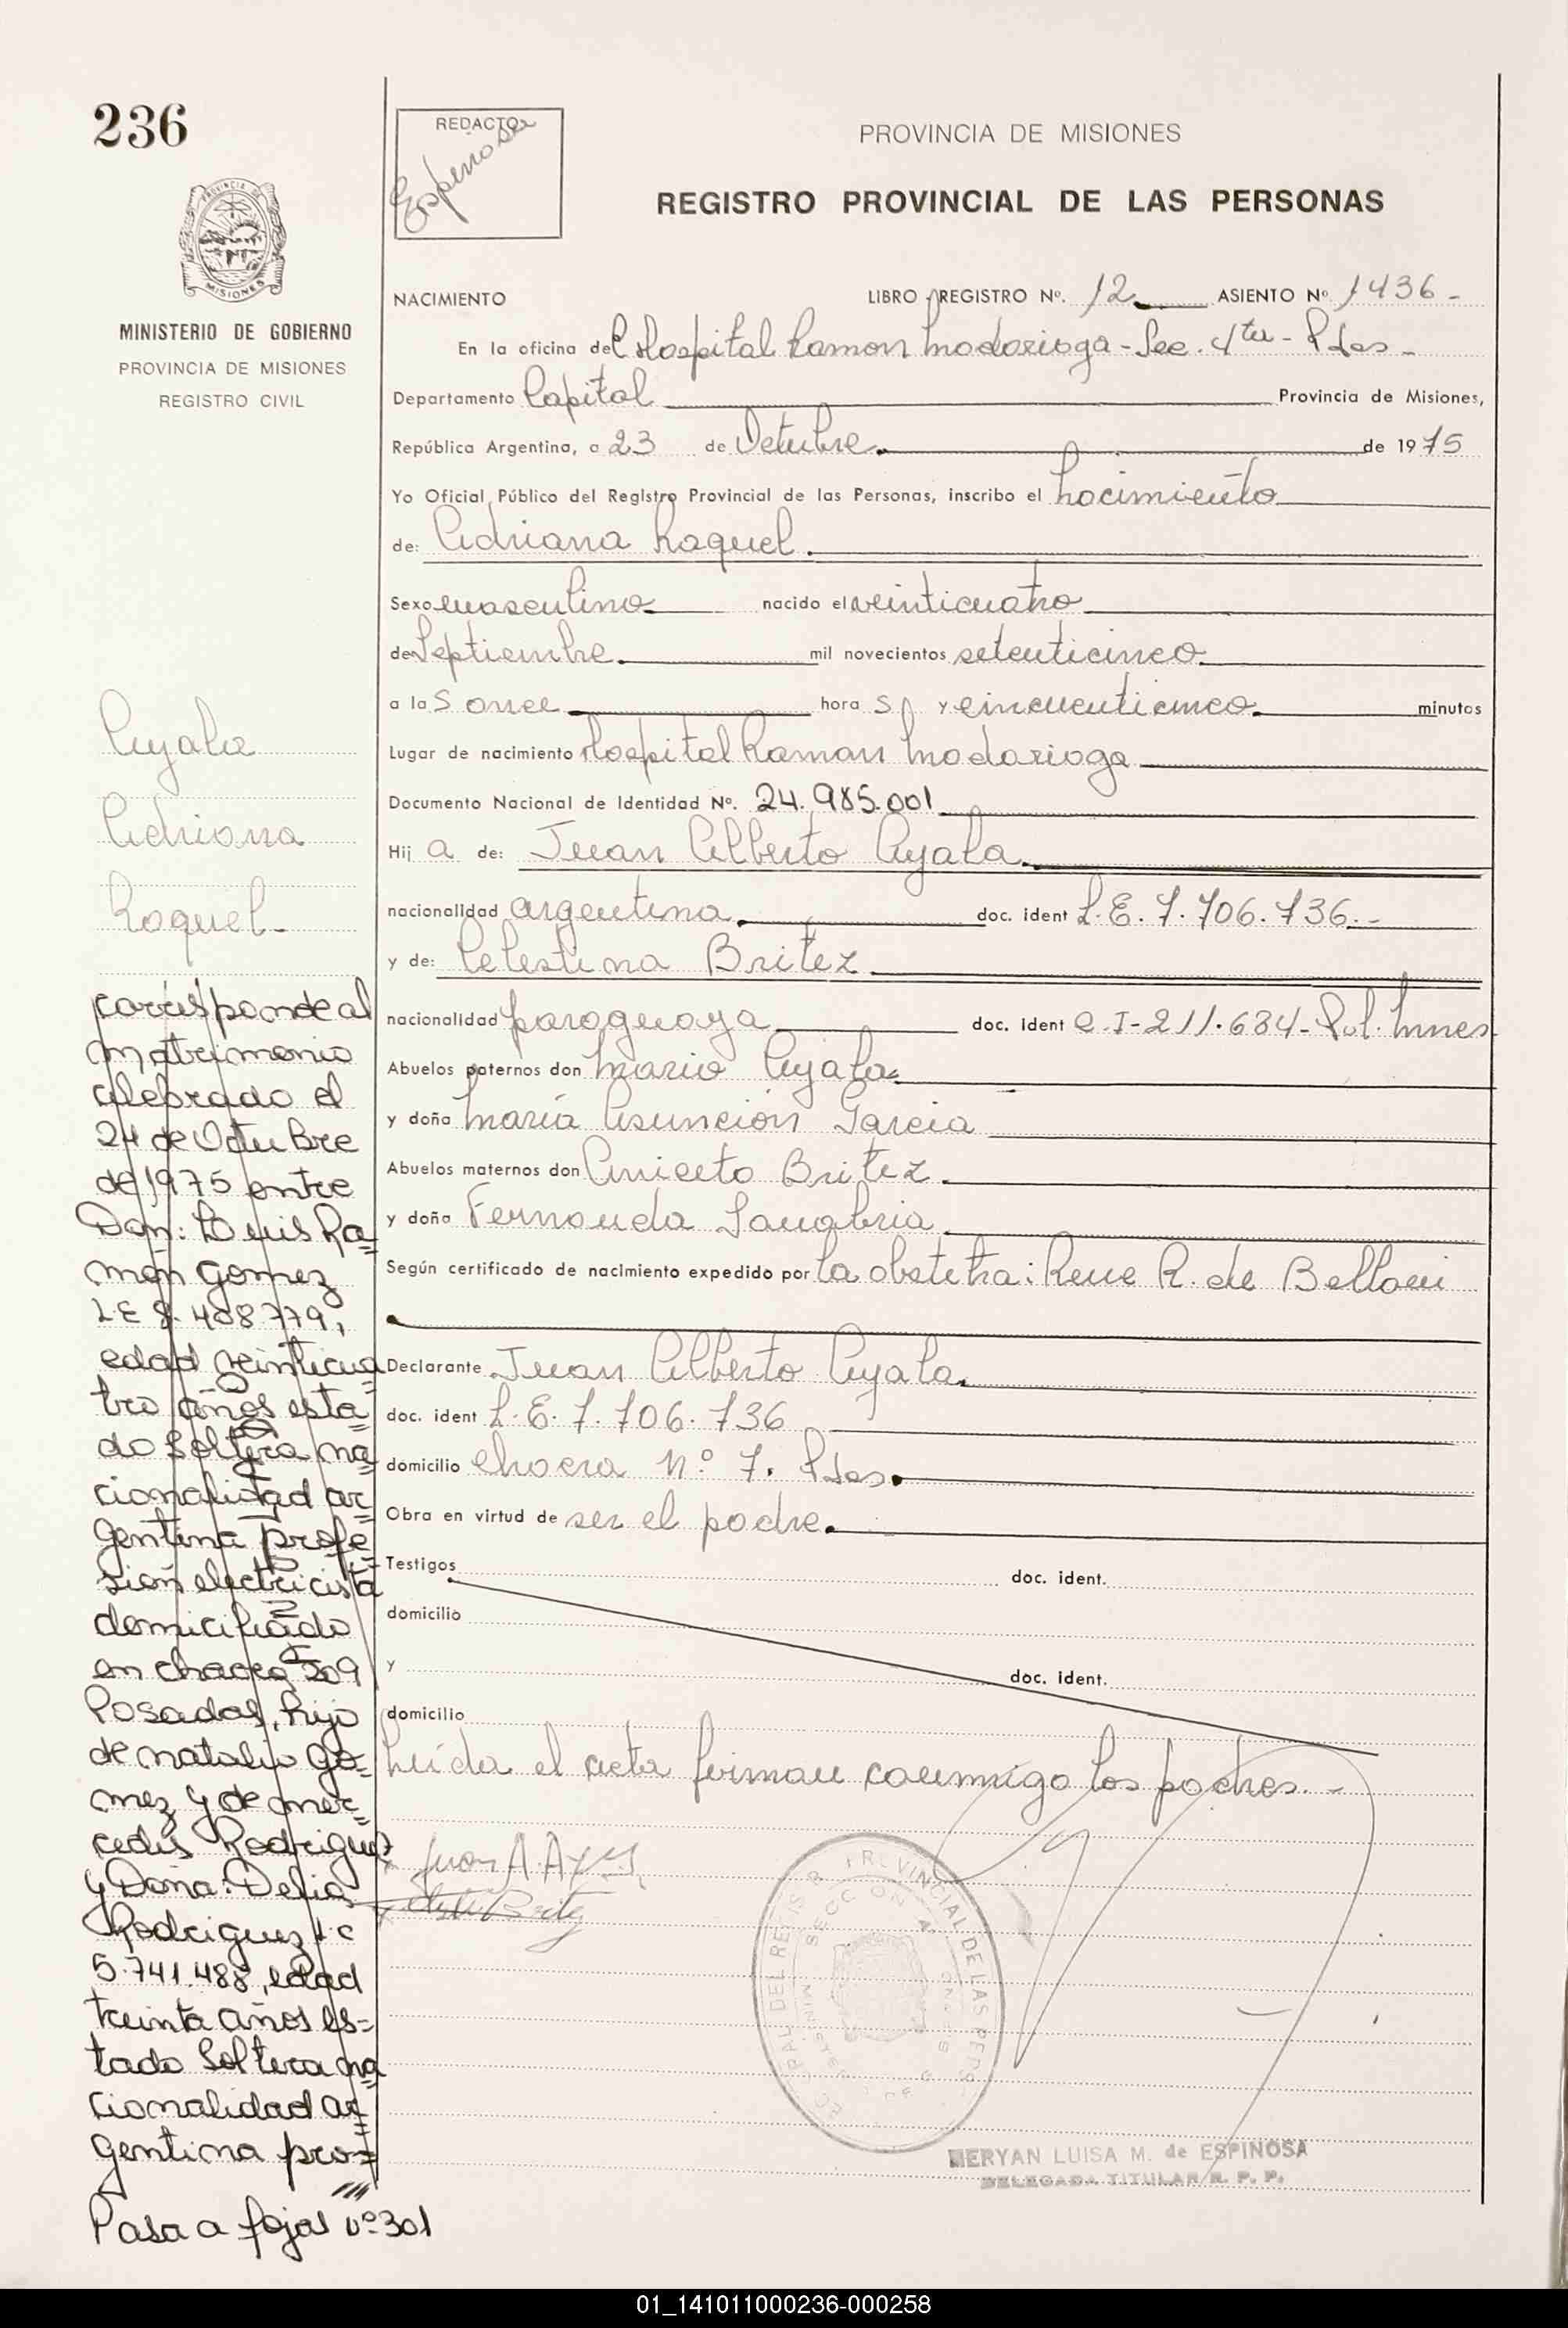 236
REDACTO
Espinosa
PROVINCIA DE MISIONES
REGISTRO PROVINCIAL DE LAS PERSONAS
MISIONES
MINISTERIO DE GOBIERNO
PROVINCIA DE MISIONES
REGISTRO CIVIL
NACIMIENTO LIBRO REGISTRO Nº. 12 ASIENTO Nº 1436-
En la oficina del Hospital Ramon Madariaga - Sec. 4ta - Pdas -
Departamento Capital Provincia de Misiones,
República Argentina, a 23 de Octubre de 1975
Yo Oficial Público del Registro Provincial de las Personas, inscribo el nacimiento
de: Adriana Raquel
Sexo masculino nacido el veinticuatro
de Septiembre mil novecientos setenticinco
a las once horas y cincuenticinco minutos
Lugar de nacimiento Hospital Ramon Madariaga
Documento Nacional de Identidad Nº. 24.985.001
Hija de: Juan Alberto Ayala
nacionalidad argentina doc. ident L.E. 7.706.736.-
y de: Celestina Britez
nacionalidad paraguaya doc. ident C.I-211.634-Pol. Mnes
Abuelos paternos don Mario Ayala
y doña María Asunción Garcia
Abuelos maternos don Aniceto Britez
y doña Fernanda Sanabria
Según certificado de nacimiento expedido por la obstetra: Rene R. de Belloni
Declarante Juan Alberto Ayala
doc. ident L.E. 7.706.736
domicilio chacra Nº 7. Pdas
Obra en virtud de ser el padre
Testigos doc. ident.
domicilio
y doc. ident.
domicilio
Leída el acta firman conmigo los padres.-
Juan A. Ayala
MERYAN LUISA M. de ESPINOSA
DELEGADA TITULAR R. P. P.
Ayala
Adriana
Raquel-
corresponde al
matrimonio
celebrado el
24 de Octubre
de 1975 entre
Don: Luis Ra=
món gomez
L E 8.408.779,
edad veinticua=
tro años esta=
do soltero na=
cionalidad ar=
gentina profe=
sión electricista
domiciliado
en chacra 209
Posadas, hijo
de natalio go=
mez y de mer=
cedes Rodriguez
y Doña: Delia
Rodriguez L C
5.741.488, edad
treinta años es=
tado Soltera na=
cionalidad ar=
gentina pro=
Pasa a fojas nº 301
01_141011000236-000258